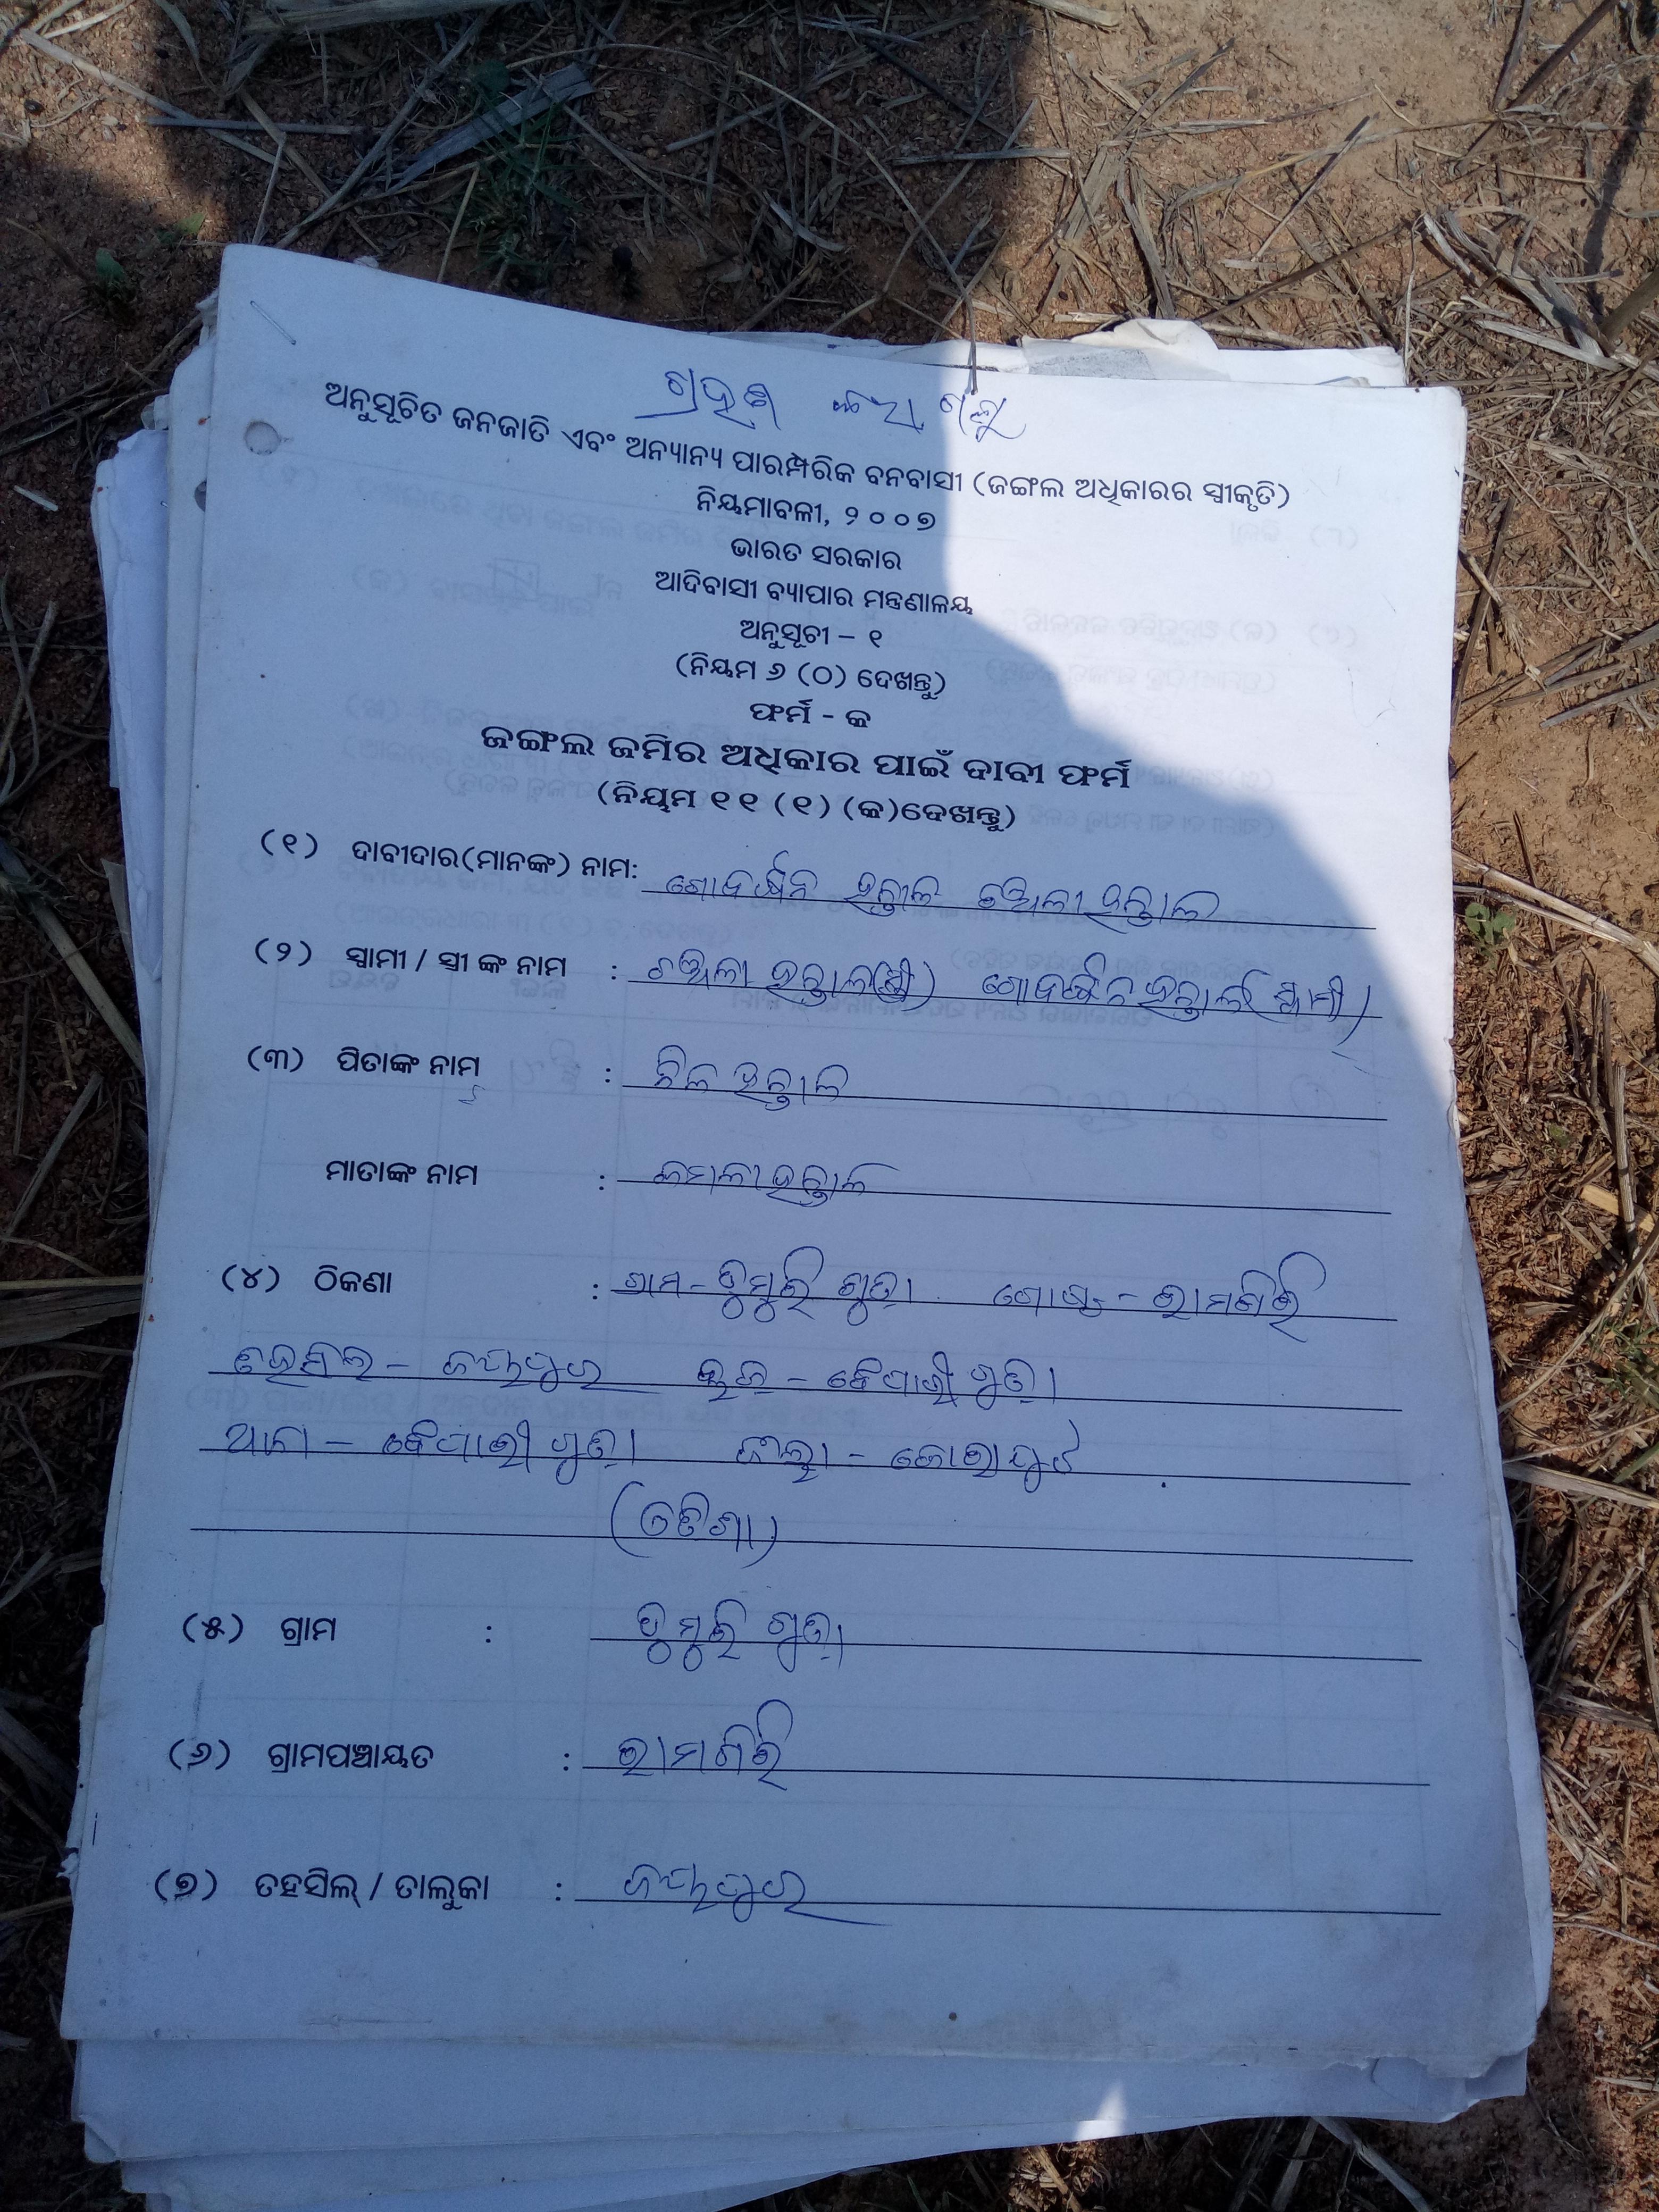 ଗ୍ରହଣ କରା ଗଲା
ଅନୁସୂଚିତ ଜନଜାତି ଏବଂ ଅନ୍ୟାନ୍ୟ ପାରମ୍ପରିକ ବନବାସୀ (ଜଙ୍ଗଲ ଅଧିକାରର ସ୍ୱୀକୃତି)
ନିୟମାବଳୀ, ୨୦୦୭
ଭାରତ ସରକାର
ଆଦିବାସୀ ବ୍ୟାପାର ମନ୍ତ୍ରଣାଳୟ
ଅନୁସୂଚୀ – ୧
(ନିୟମ ୬ (ଠ) ଦେଖନ୍ତୁ)
ଫର୍ମ - କ
ଜଙ୍ଗଲ ଜମିର ଅଧିକାର ପାଇଁ ଦାବୀ ଫର୍ମ
(ନିୟମ ୧୧ (୧) (କ)ଦେଖନ୍ତୁ)
(୧) ଦାବୀଦାର(ମାନଙ୍କ) ନାମ: ହନ୍ତାଳ ହନ୍ତାଳ
(୨) ସ୍ୱାମୀ / ସ୍ତ୍ରୀ ଙ୍କ ନାମ : ହନ୍ତାଳ(ସ୍ତ୍ରୀ) ହନ୍ତାଳ(ସ୍ୱାମୀ)
(୩) ପିତାଙ୍କ ନାମ : ହନ୍ତାଳ
ମାତାଙ୍କ ନାମ : କମଳା ହନ୍ତାଳ
(୪) ଠିକଣା : ଗ୍ରାମ - ଡୁମୁରି ଗୁଡ଼ା ପୋଷ୍ଟ - ରାମଗିରି
ତହସିଲ - ଜୟପୁର ବ୍ଲକ - ବୈପାରୀଗୁଡ଼ା
ଥାନା - ବୈପାରୀଗୁଡ଼ା ଜିଲ୍ଲା - କୋରାପୁଟ
(ଓଡିଶା)
(୫) ଗ୍ରାମ : ଡୁମୁରି ଗୁଡ଼ା
(୬) ଗ୍ରାମପଞ୍ଚାୟତ : ରାମଗିରି
(୭) ତହସିଲ୍ / ତାଲୁକା : ଜୟପୁର